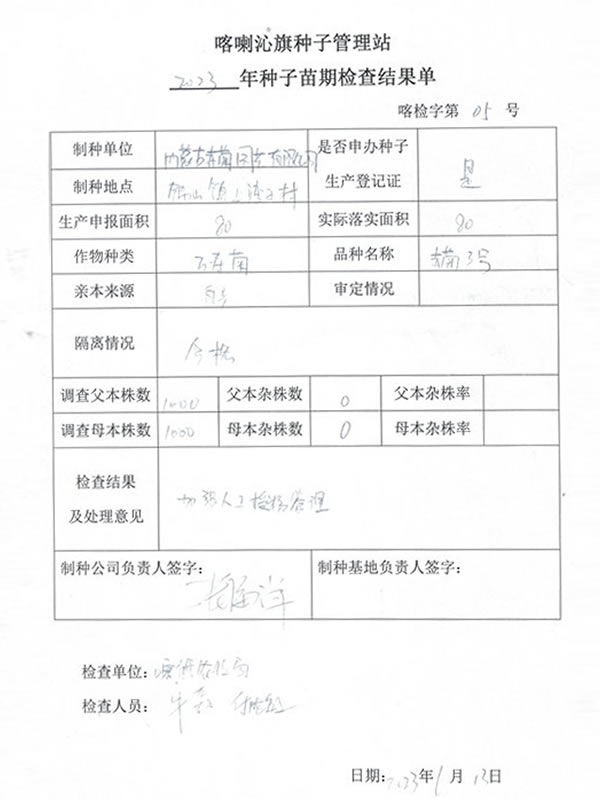 喀喇沁旗种子管理站
2023 年种子苗期检查结果单
喀检字第 05 号
制种单位 内蒙古 有限公司
是否申办种子生产登记证 是
制种地点 镇上 村
生产申报面积 80 实际落实面积 80
作物种类 万寿菊 品种名称 3号
亲本来源 自 审定情况
隔离情况 合格
调查父本株数 1000 父本杂株数 0 父本杂株率
调查母本株数 1000 母本杂株数 0 母本杂株率
检查结果及处理意见 加强人工 管理
制种公司负责人签字： 制种基地负责人签字：
检查单位：
检查人员：
日期：2023年 月 13日